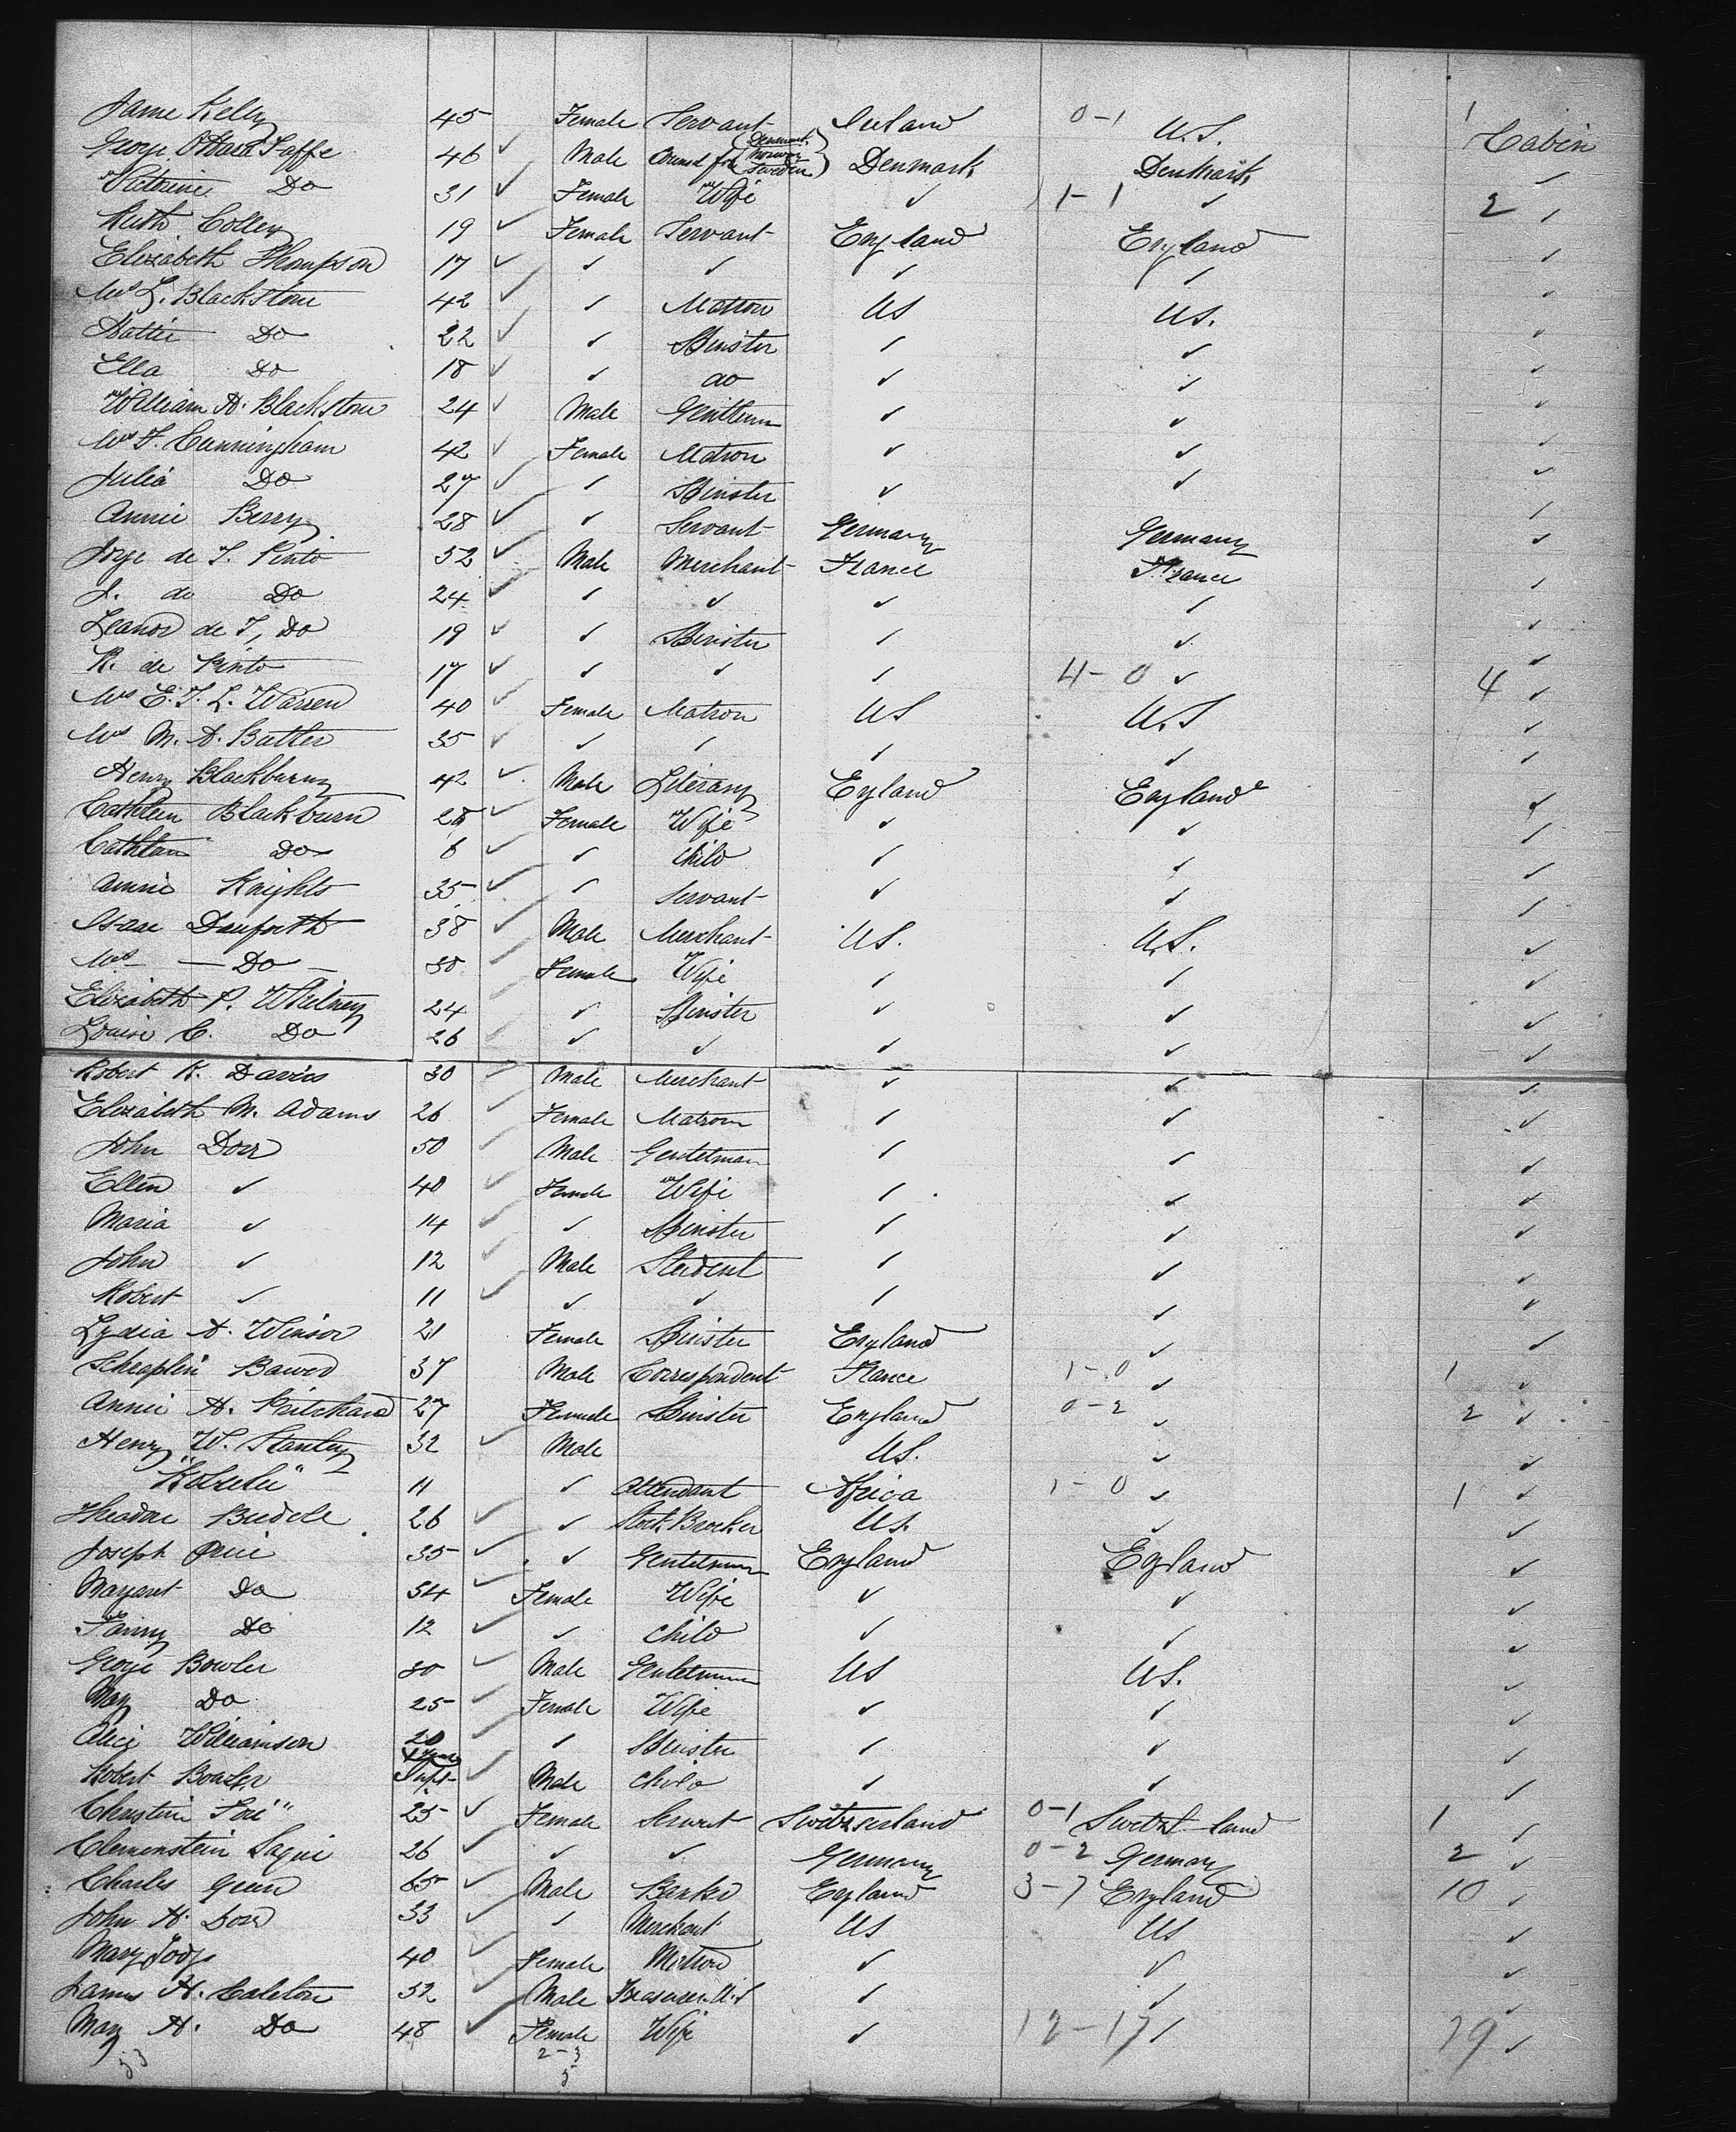 Jane Kelly 45 Female Servant Ireland 0-1 U.S. 1 Cabin
George Jaffe 46 ✓ Male Consul for (Denmark, Norway Sweden) Denmark Denmark ✓
Do 31 ✓ Female Wife ✓ 1-1 ✓ 2 ✓
Ruth Colley 19 ✓ Female Servant England England ✓
Elizabeth Thompson 17 ✓ ✓ ✓ ✓ ✓ ✓
Mrs L. Blackstone 42 ✓ ✓ Matron US US. ✓
Hattie Do 22 ✓ ✓ Spinster ✓ ✓ ✓
Ella Do 18 ✓ ✓ do ✓ ✓ ✓
William H. Blackstone 24 ✓ Male Gentleman ✓ ✓ ✓
Mrs F. Cunningham 42 ✓ Female Matron ✓ ✓ ✓
Julia Do 27 ✓ ✓ Spinster ✓ ✓ ✓
Annie Berry 28 ✓ ✓ Servant Germany Germany ✓
Jorge de S. Pinto 52 ✓ Male Merchant France France ✓
J. de Do 24 ✓ ✓ ✓ ✓ ✓ ✓
Leanor de S, Do 19 ✓ ✓ Spinster ✓ ✓ ✓
R. de Pinto 17 ✓ ✓ ✓ ✓ 4-0 ✓ 4 ✓
Mrs E. T. L. Warren 40 ✓ Female Matron US U.S ✓
Mrs M. A. Butler 35 ✓ ✓ ✓ ✓ ✓ ✓
Henry Blackburn 42 ✓ Male Literary England England ✓
Cathleen Blackburn 28 ✓ Female Wife ✓ ✓ ✓
Do 6 ✓ ✓ Child ✓ ✓ ✓
Annie Knights 35 ✓ ✓ Servant ✓ ✓ ✓
Isaac Danforth 38 ✓ Male Merchant US. U.S. ✓
Mrs — Do — 30 Female Wife ✓ ✓ ✓
Elizabeth P. Whitney 24 ✓ Spinster ✓ ✓ ✓
Louise C. Do 26 ✓ ✓ ✓ ✓ ✓
Robert K. Davies 30 ✓ Male Merchant ✓ ✓ ✓
Elizabeth M. Adams 26 ✓ Female Matron ✓ ✓ ✓
John Dorr 50 ✓ Male Gentelman ✓ ✓ ✓
Ellen ✓ 40 ✓ Female Wife ✓ ✓ ✓
Maria ✓ 14 ✓ ✓ Spinster ✓ ✓ ✓
John ✓ 12 ✓ Male Student ✓ ✓ ✓
Robert ✓ 11 ✓ ✓ ✓ ✓ ✓ ✓
Lydia A. Winsor 21 Female Spinster England ✓ ✓
Bawer 37 Male Correspondent France 1-0 ✓ 1 ✓
Annie H. Pritchard 27 Female Spinster England 0-2 ✓ 2 ✓
Henry W. Stanley 32 ✓ Male US. ✓ ✓
11 ✓ Attendant Africa 1-0 ✓ 1 ✓
Theadore 26 ✓ ✓ Stock Brocker US. ✓ ✓
Joseph Price 35 ✓ ✓ Gentelman England England ✓
Margaret Do 34 ✓ Female Wife ✓ ✓ ✓
Fanny Do 12 ✓ ✓ Child ✓ ✓ ✓
George Bowler 30 ✓ Male Gentelman US US. ✓
May Do 25 ✓ Female Wife ✓ ✓ ✓
Alice Williamson 20 ✓ ✓ Spinster ✓ ✓ ✓
Robert Bowler Inft ✓ Male Child ✓ ✓ ✓
25 ✓ Female Servant Switzerland 0-1 1 ✓
26 ✓ ✓ ✓ Germany 0-2 Germany 2 ✓
Charles Green 65 ✓ Male Banker England 3-7 England 10 ✓
John H. Dorr 33 ✓ ✓ Merchant US US ✓
Mary 40 ✓ Female Matron ✓ ✓ ✓
James H. 52 ✓ Male Treasurer U.S ✓ ✓ ✓
Mary H. Do 48 ✓ Female Wife ✓ 12-17 ✓ 29 ✓
53 2-3
5